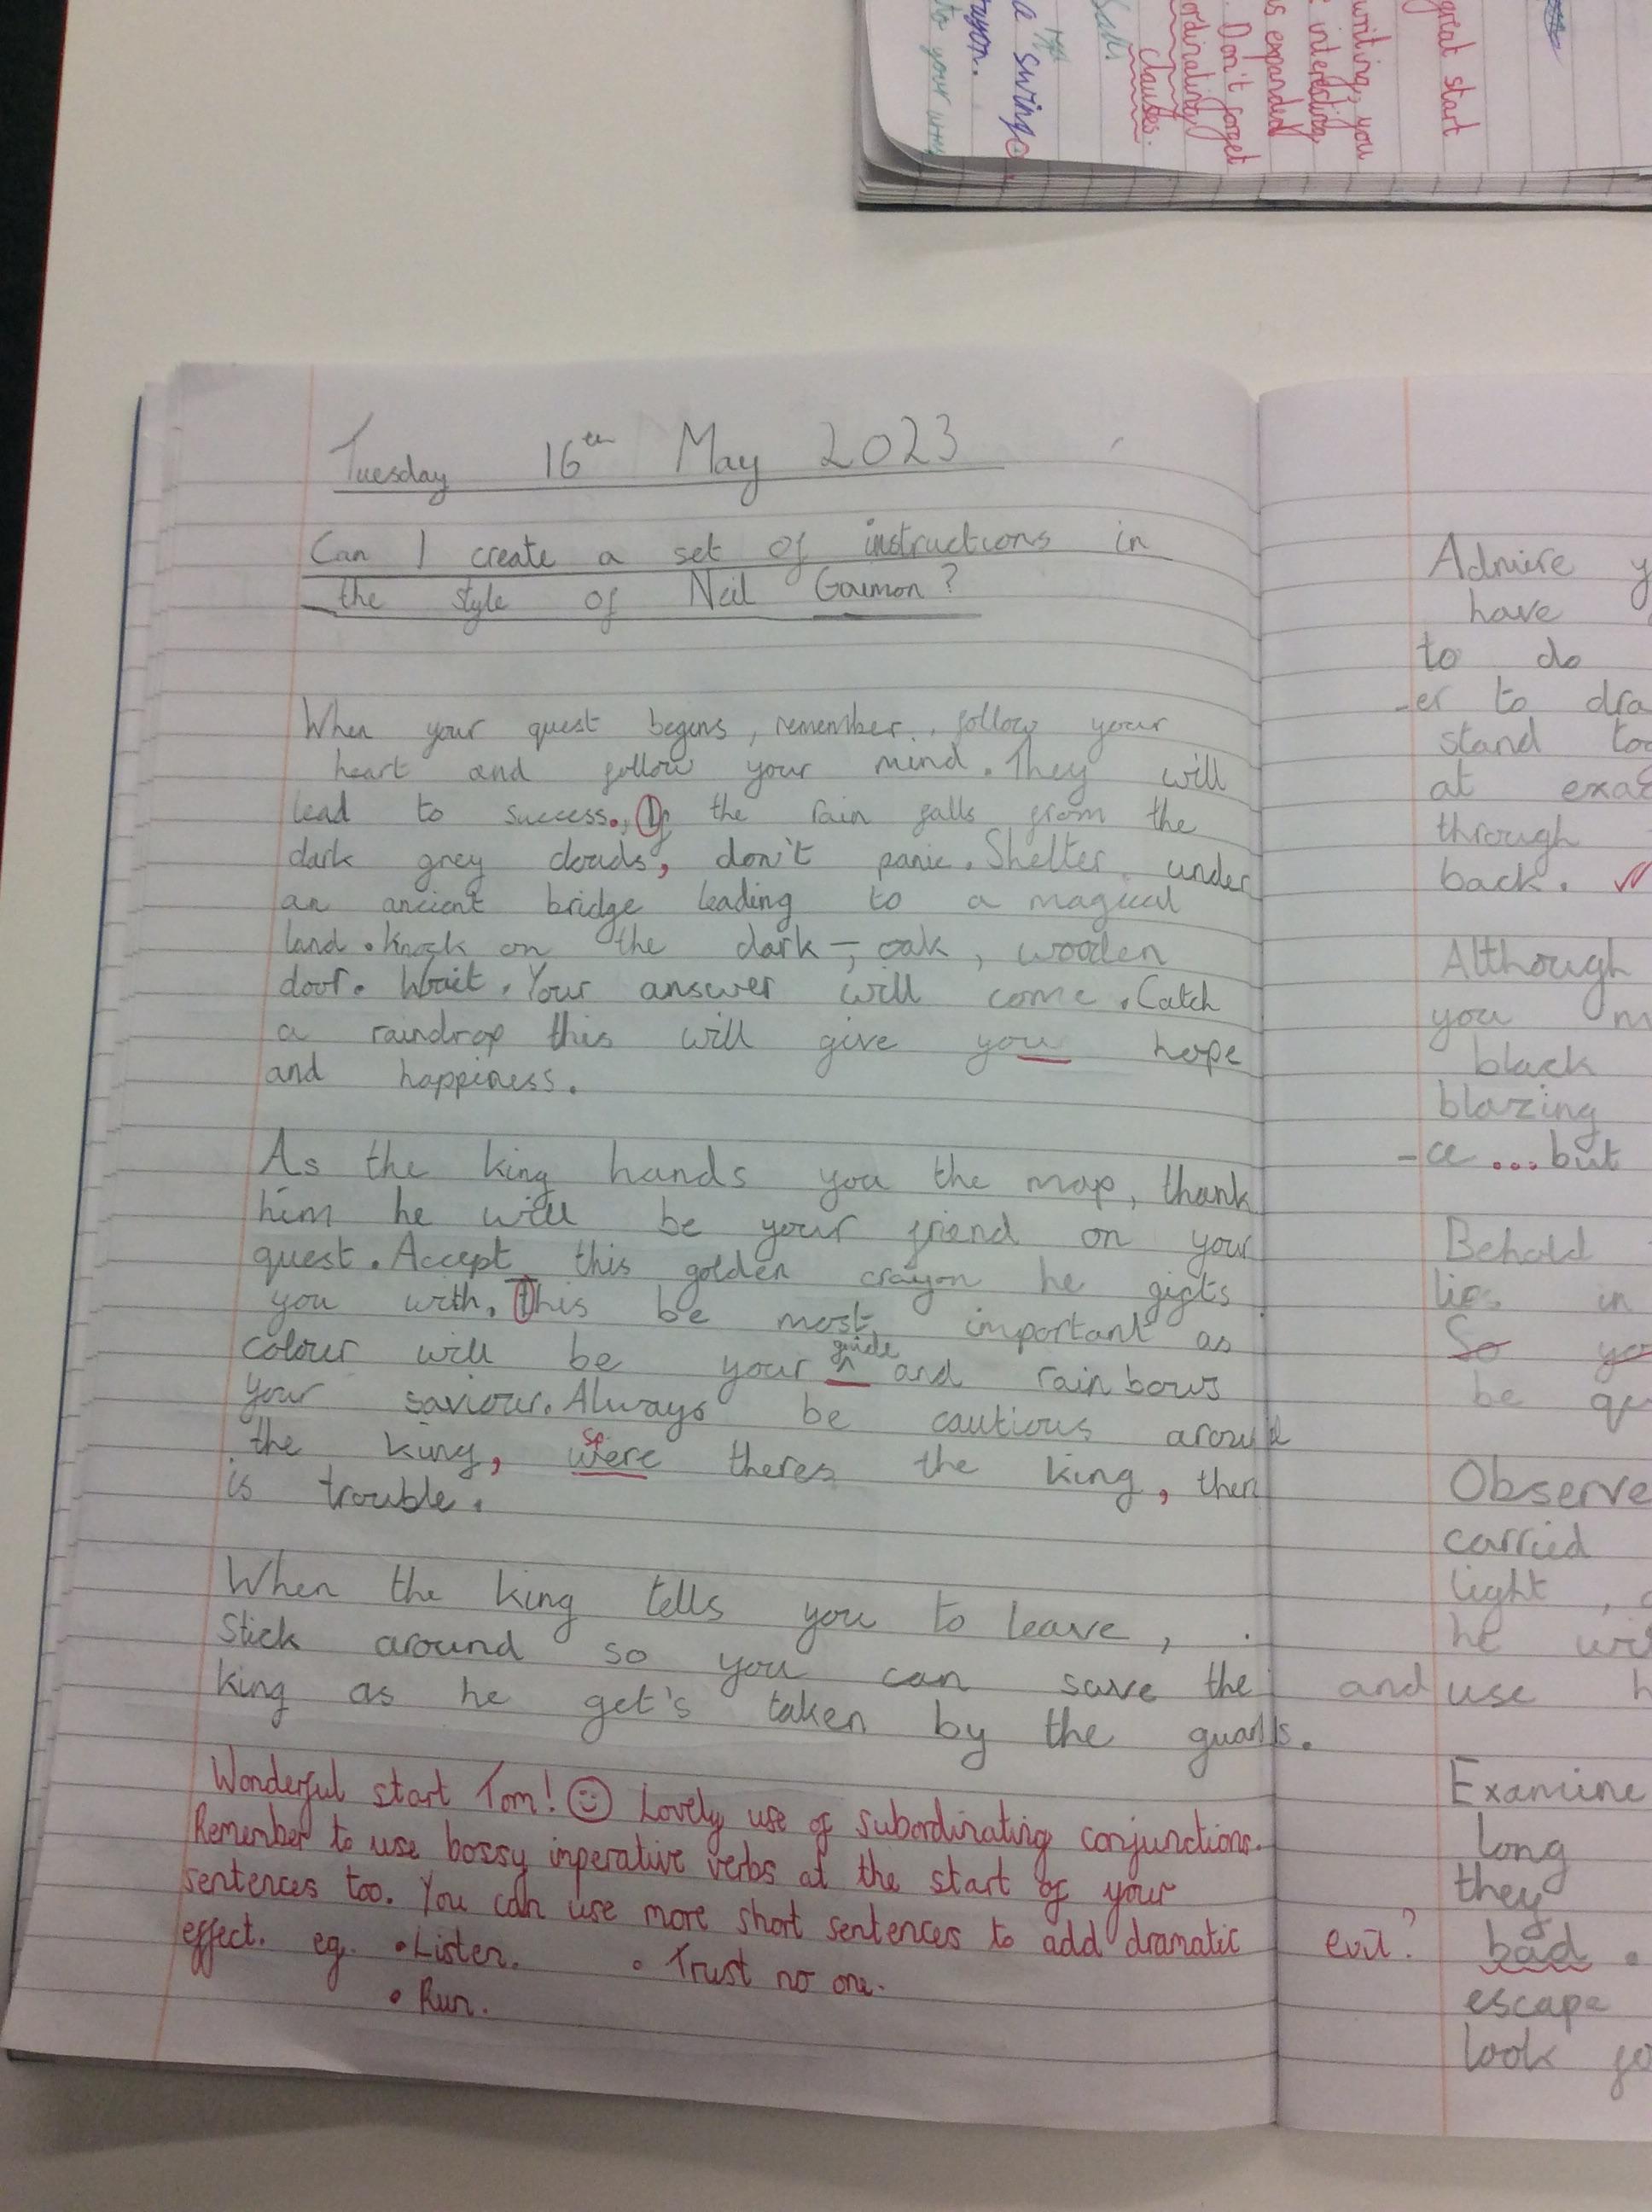 great start
writing, you
interesting
expanded
Don't forget
ordinating
clauses.
a swing
to your
Tuesday 16th May 2023
Can I create a set of instructions in
the style of Neil Gaimon?
When your quest begins, remember, follow your
heart and follow your mind. They will
lead to success. If the rain falls from the
dark grey clouds, don't panic. Shelter under
an ancient bridge leading to a magical
land. Knock on the dark-, oak, wooden
door. Wait. Your answer will come. Catch
a raindrop this will give you hope
and happiness.
As the king hands you the map, thank
him he will be your friend on your
quest. Accept this golden crayon he gifts
you with. This be most important as
guide
colour will be your ^ and rainbows
your saviour. Always be cautious around
the king, were theres the king, then
is trouble.
When the king tells you to leave,
Stick around so you can save the
king as he get's taken by the guards.
Wonderful start Tom! Lovely use of subordinating conjunctions.
Remember to use bossy imperative verbs at the start of your
sentences too. You can use more short sentences to add dramatic
effect. eg. • Listen. • Trust no one.
• Run.
Admire
have
to do
-er to dra
stand
at
through
back.
Although
you
black
blazing
-ce ...but
Behold
lies in
So
be
Observe
carried
light,
he
and use
Examine
long
they
evil? bad.
escape
look